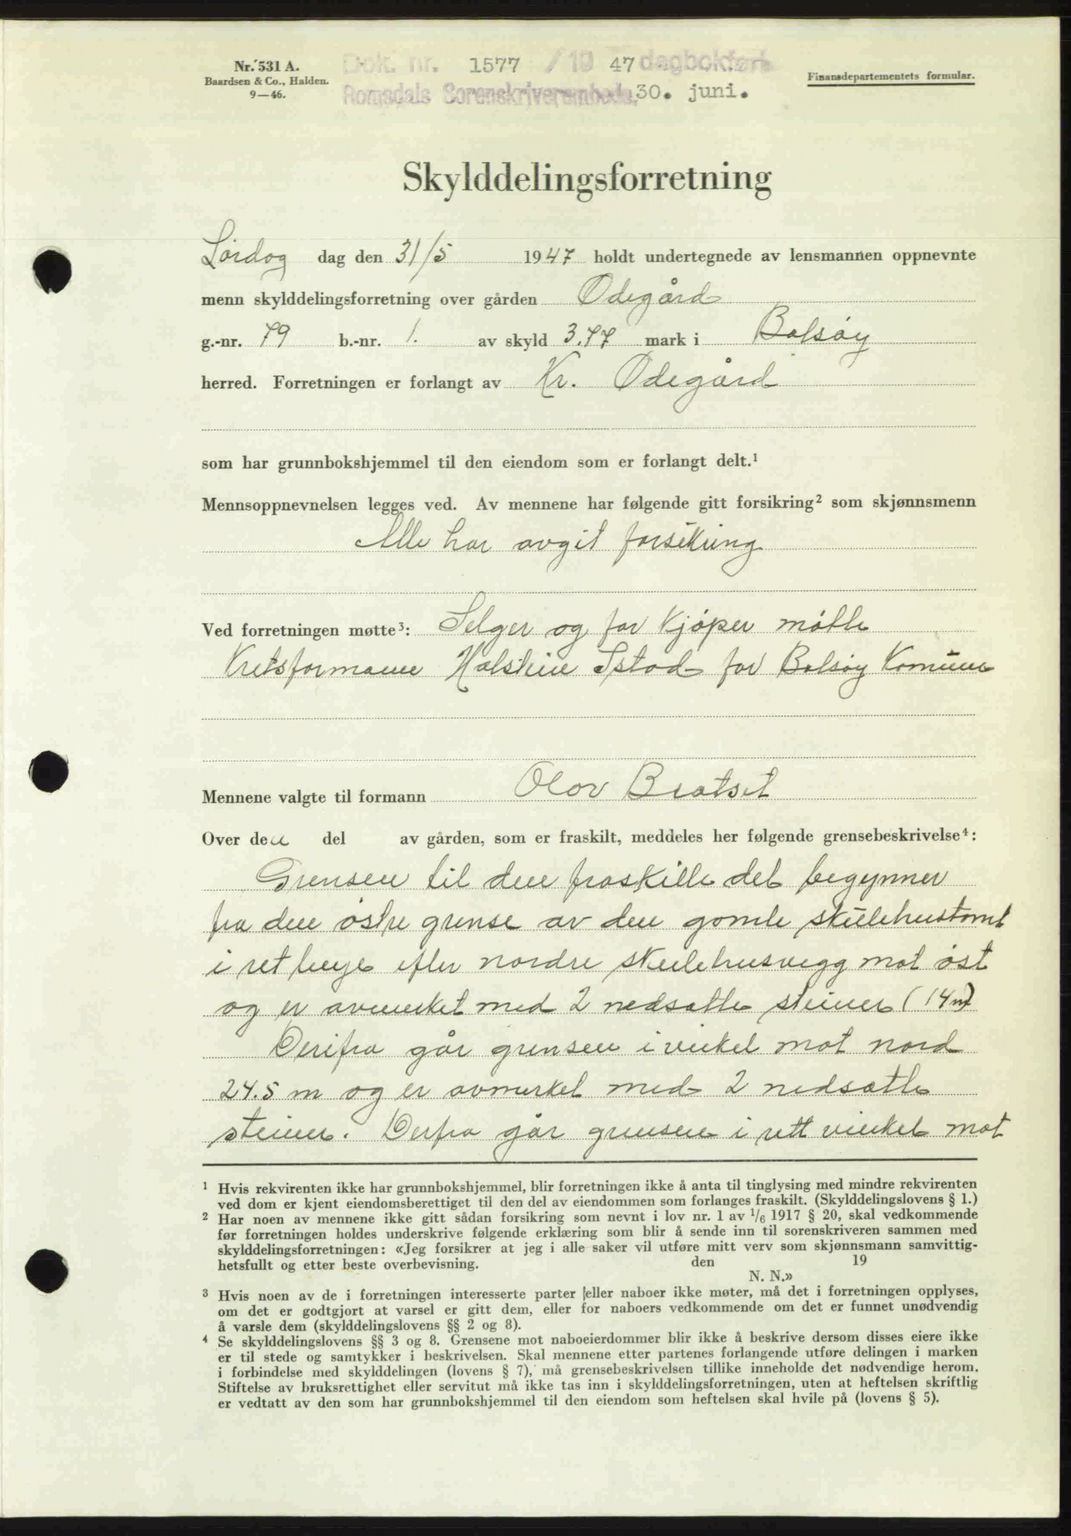 Nr. 531 A.
Baardsen & Co., Halden.
9—46.
Dok. nr. 1577 / 19 47 dagbokført
Romsdals Sorenskriverembede, 30. juni.
Finansdepartementets formular.
Skylddelingsforretning
Lørdag dag den 31/5 1947 holdt undertegnede av lensmannen oppnevnte
menn skylddelingsforretning over gården Ødegård
g.-nr. 79 b.-nr. 1. av skyld 3.77 mark i Bolsøy
herred. Forretningen er forlangt av Kr. Ødegård
som har grunnbokshjemmel til den eiendom som er forlangt delt.¹
Mennsoppnevnelsen legges ved. Av mennene har følgende gitt forsikring² som skjønnsmenn
Alle har avgit forsikring
Ved forretningen møtte³: Selger og for Kjøper møtte
Kretsformann Halstein Istad for Bolsøy Komune
Mennene valgte til formann Olav Bratset
Over den del av gården, som er fraskilt, meddeles her følgende grensebeskrivelse⁴:
Grensen til den fraskille del begynner
fra den østre grense av den gamle skulehustomt
i ret linje efter nordre skulehusvegg mot øst
og er avmerket med 2 nedsatte steiner (14 m)
Derifra går grensen i vinkel mot nord
24.5 m og er avmerket med 2 nedsatte
steiner. Derfra går grensen i rett vinkel mot
¹ Hvis rekvirenten ikke har grunnbokshjemmel, blir forretningen ikke å anta til tinglysing med mindre rekvirenten
ved dom er kjent eiendomsberettiget til den del av eiendommen som forlanges fraskilt. (Skylddelingslovens § 1.)
² Har noen av mennene ikke gitt sådan forsikring som nevnt i lov nr. 1 av 1/6 1917 § 20, skal vedkommende
før forretningen holdes underskrive følgende erklæring som blir å sende inn til sorenskriveren sammen med
skylddelingsforretningen: «Jeg forsikrer at jeg i alle saker vil utføre mitt verv som skjønnsmann samvittig-
hetsfullt og etter beste overbevisning. den 19
N. N.»
³ Hvis noen av de i forretningen interesserte parter eller naboer ikke møter, må det i forretningen opplyses,
om det er godtgjort at varsel er gitt dem, eller for naboers vedkommende om det er funnet unødvendig
å varsle dem (skylddelingslovens §§ 2 og 8).
⁴ Se skylddelingslovens §§ 3 og 8. Grensene mot naboeierdommer blir ikke å beskrive dersom disses eiere ikke
er til stede og samtykker i beskrivelsen. Skal mennene etter partenes forlangende utføre delingen i marken
i forbindelse med skylddelingen (lovens § 7), må grensebeskrivelsen tillike inneholde det nødvendige herom.
Stiftelse av bruksrettighet eller servitut må ikke tas inn i skylddelingsforretningen, uten at heftelsen skriftlig
er vedtatt av den som har grunnbokshjemmel til den eiendom som heftelsen skal hvile på (lovens § 5).